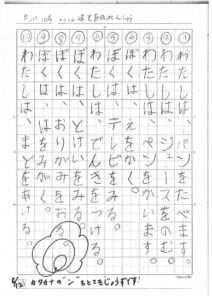 はとをのれんしゅう
① わたしは、パンをたべます。
② わたしは、ジュースをのむ。
③ わたしは、ペンをかいます。
④ ぼくは、テレビをみる。
⑤ ぼくは、えをかく。
⑥ わたしは、でんきをつける。
⑦ ぼくは、おとけいをみる。
⑧ ぼくは、おりがみをおる。
⑨ ぼくは、はをみがく。
⑩ わたしは、まどをあける。
カタカナ
もとてもじょうずです